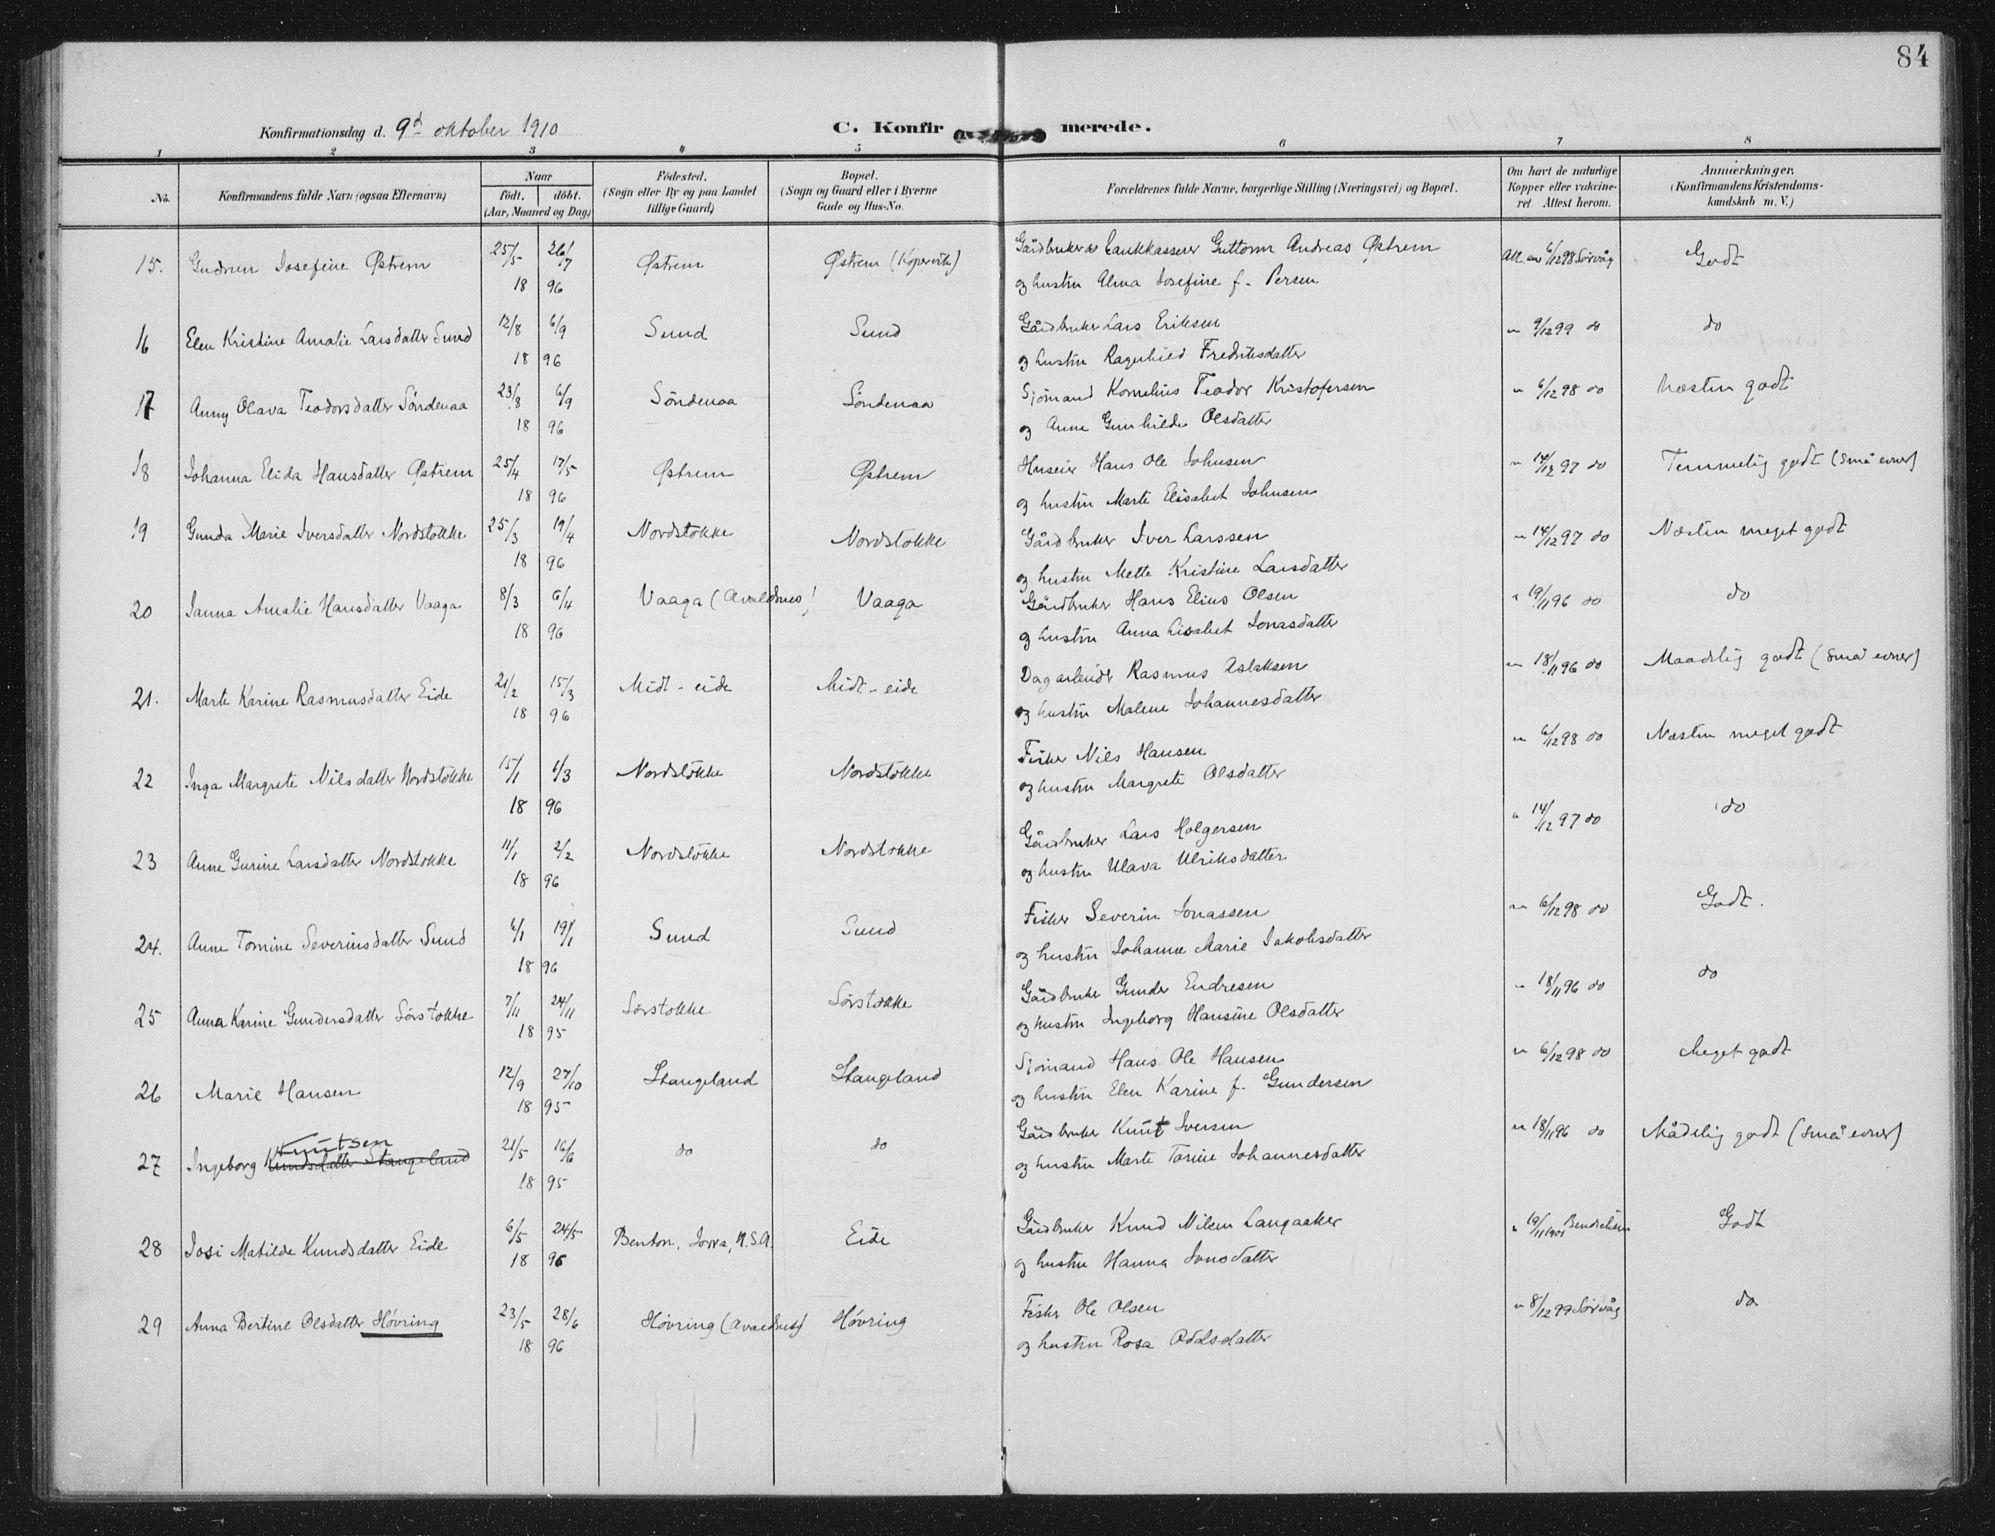 84
Konfirmationsdag d. 9d oktober 1910
C. Konfirmerede.
1 2 3 4 5 6 7 8
No. Konfirmandens fulde Navn (ogsaa Efternavn)
Naar
födt. döbt.
(Aar, Maaned og Dag)
Födested.
(Sogn eller By og paa Landet
tillige Gaard)
Bopæl.
(Sogn og Gaard eller i Byerne
Gade og Hus-No.
Forældrenes fulde Navne, borgerlige Stilling (Næringsvei) og Bopæl.
Om havt de naturlige
Kopper eller vakcine-
ret Attest herom.
Anmærkninger.
(Konfirmandens Kristendoms-
kundskab m. V.)
15. Gudrun Josefine Østrem 25/5 26/7 Østrem Østrem (Kopervik) Gårdbruker & bankkasserer Guttorm Andreas Østrem Att. av 6/12 98 Sörvåg Godt
18 96 og hustru Alma Josefine f. Persen
16 Elen Kristine Amalie Larsdatter Sund 12/8 6/9 Sund Sund Gårdbruker Lars Eriksen " 9/12 99 do do
18 96 og hustru Ragnhild Fredriksdatter
17 Anny Olava Teodorsdatter Söndenaa 23/8 6/9 Söndenaa Söndenaa Sjömand Kornelius Teodor Kristofersen " 6/12 98 do Næsten godt
18 96 og Anne Gunhilde Olsdatter
18 Johanna Elida Hansdatter Østrem 25/4 17/5 Østrem Østrem Huseier Hans Ole Johnsen " 14/12 97 do Temmelig godt (små evner)
18 96 og hustru Marte Elisabet Johnsen
19 Gunda Marie Iversdatter Nordstokke 25/3 19/4 Nordstokke Nordstokke Gårdbruker Iver Larssen " 14/12 97 do Næsten meget godt
18 96 og hustru Mette Kristine Larsdatter
20 Janna Amalie Hansdatter Vaaga 8/3 6/4 Vaaga (Avaldsnes) Vaaga Gårdbruker Hans Elius Olsen " 19/11 96 do do
18 96 og hustru Anna Lisabet Jonasdatter
21. Marte Karine Rasmusdatter Eide 21/2 15/3 Midt-eide Midt-eide Dagarbeider Rasmus Aslaksen " 18/11 96 do Maadelig godt (små evner)
18 96 og hustru Malene Johannesdatter
22 Inga Margrete Nilsdatter Nordstokke 15/1 1/3 Nordstökke Nordstokke Fisker Nils Hansen " 6/12 98 do Næsten meget godt
18 96 og hustru Margrete Olsdatter
23 Anne Gurine Larsdatter Nordstokke 11/1 2/2 Nordstökke Nordstokke Gårdbruker Lars Holgersen " 14/12 97 do do
18 96 og hustru Ulava Ulriksdatter
24. Anne Tomine Severinsdatter Sund 6/1 19/1 Sund Sund Fisker Severin Jonassen " 6/12 98 do Godt.
18 96 og hustru Johanne Marie Jakobsdatter
25 Anna Karine Gundersdatter Sörstokke 7/11 24/11 Sörstokke Sörstokke Gårdbruker Gunder Endresen " 18/11 96 do do
18 95 og hustru Ingeborg Hansine Olsdatter
26 Marie Hansen 12/9 27/10 Stangeland Stangeland Sjömand Hans Ole Hansen " 6/12 98 do Meget godt
18 95 og hustru Elen Karine f. Gundersen
Knutsen
27 Ingeborg Knudsdatter Stangeland 21/5 16/6 do do Gårdbruker Knut Iversen " 18/11 96 do Mådelig godt (små evner)
18 95 og hustru Marte Torine Johannesdatter
28 Josi Matilde Knudsdatter Eide 6/5 24/5 Benton, Iowa, N.S.A. Eide Gårdbruker Knud Langaaker " 19/11 1901 Godt
18 96 og hustru Hanna Jonsdatter
29 Anna Bertine Olsdatter Hövring 23/5 28/6 Hövring (Avaldsnes) Hövring Fisker Ole Olsen " 8/12 99 Sörvåg do
18 96 og hustru Rosa Oddsdatter